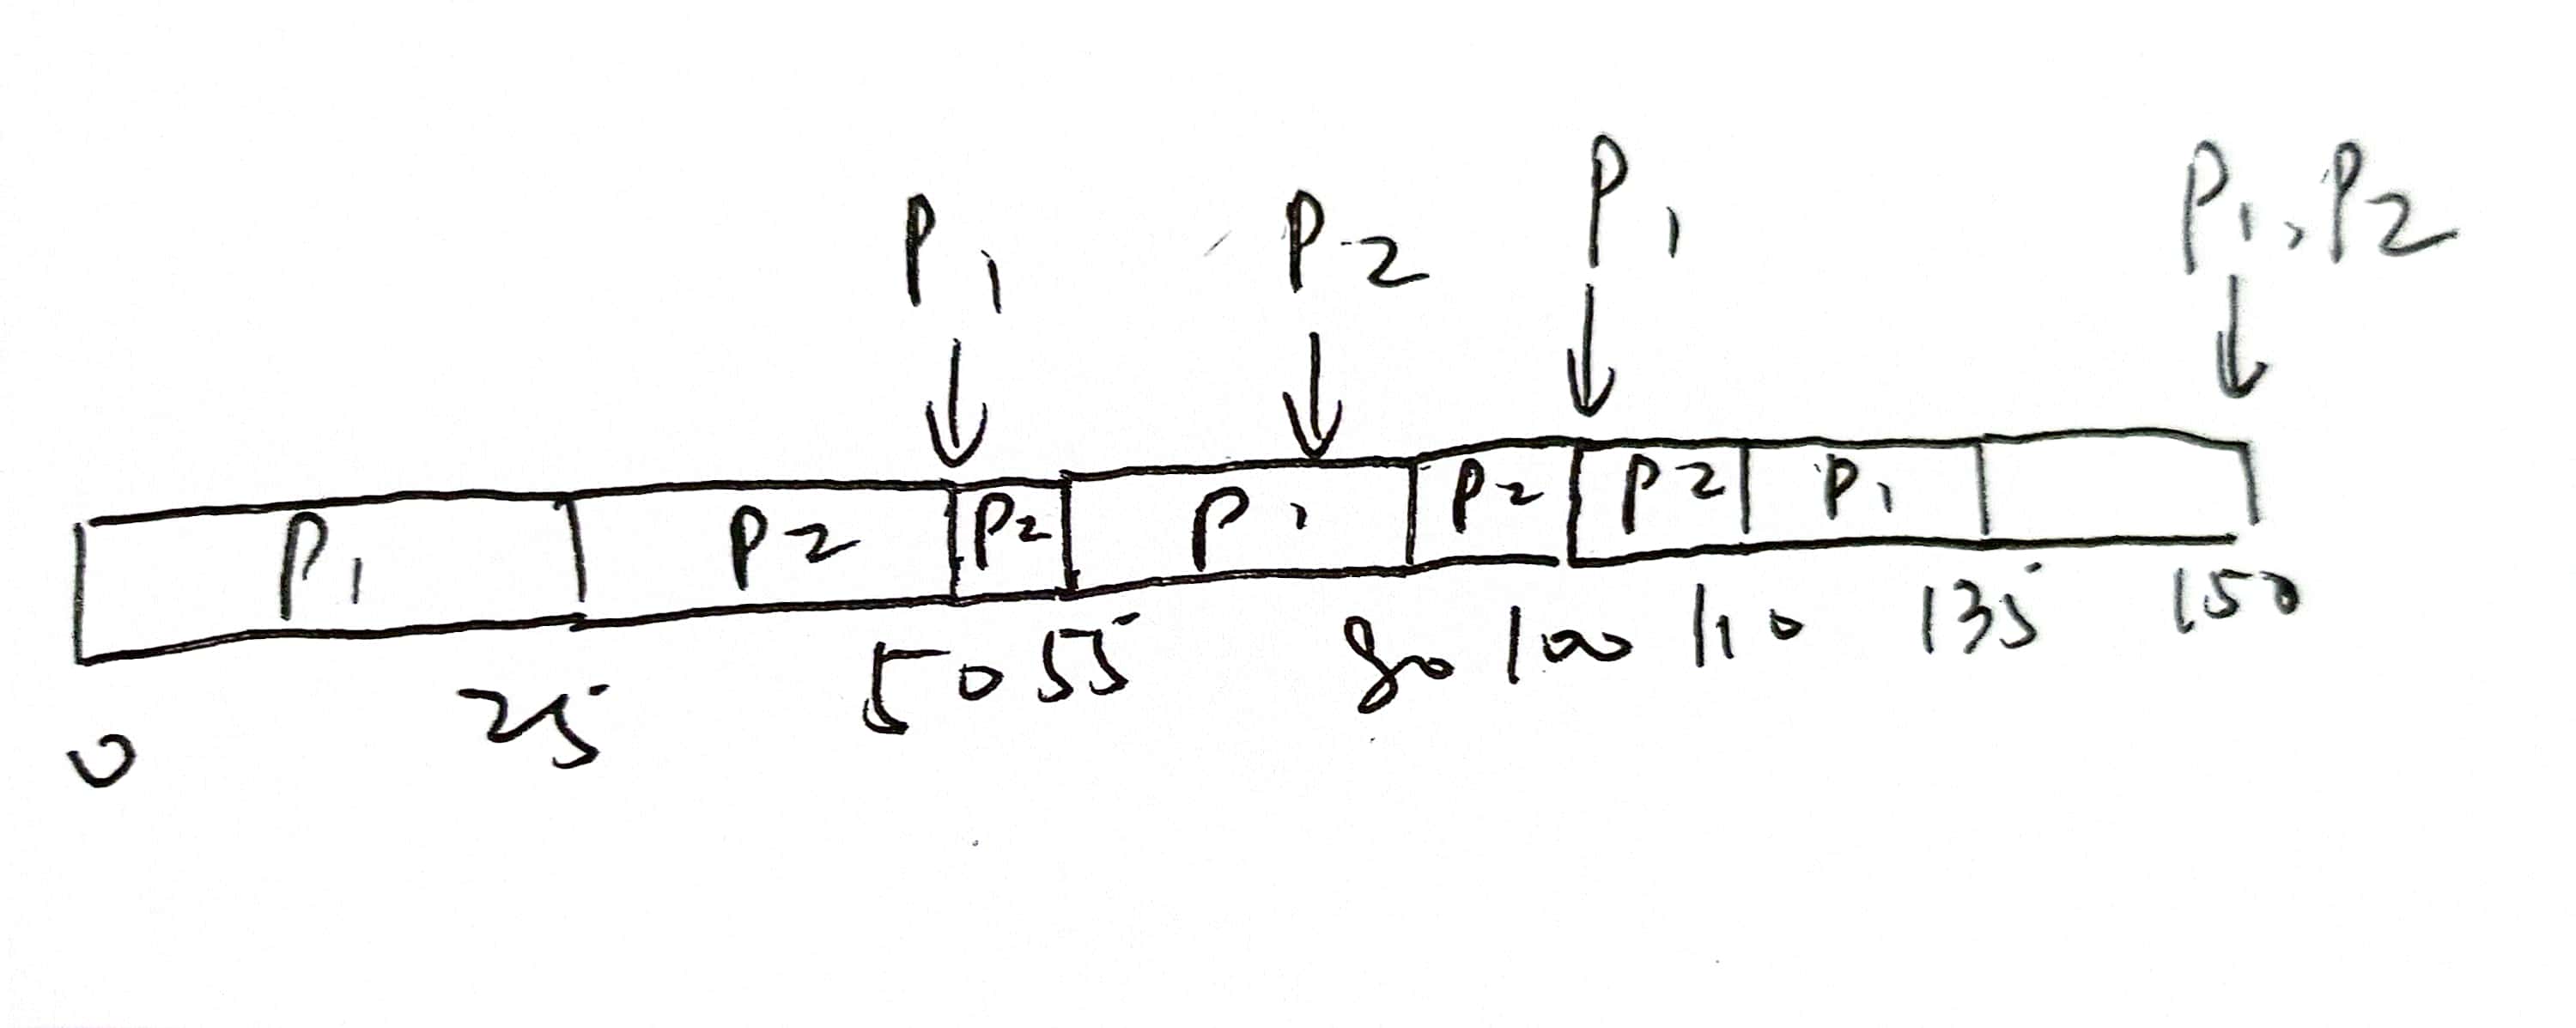 P1 P2 P1 P1, P2
P1 P2 P2 P1 P2 P2 P1
0 25 50 55 80 100 110 135 150